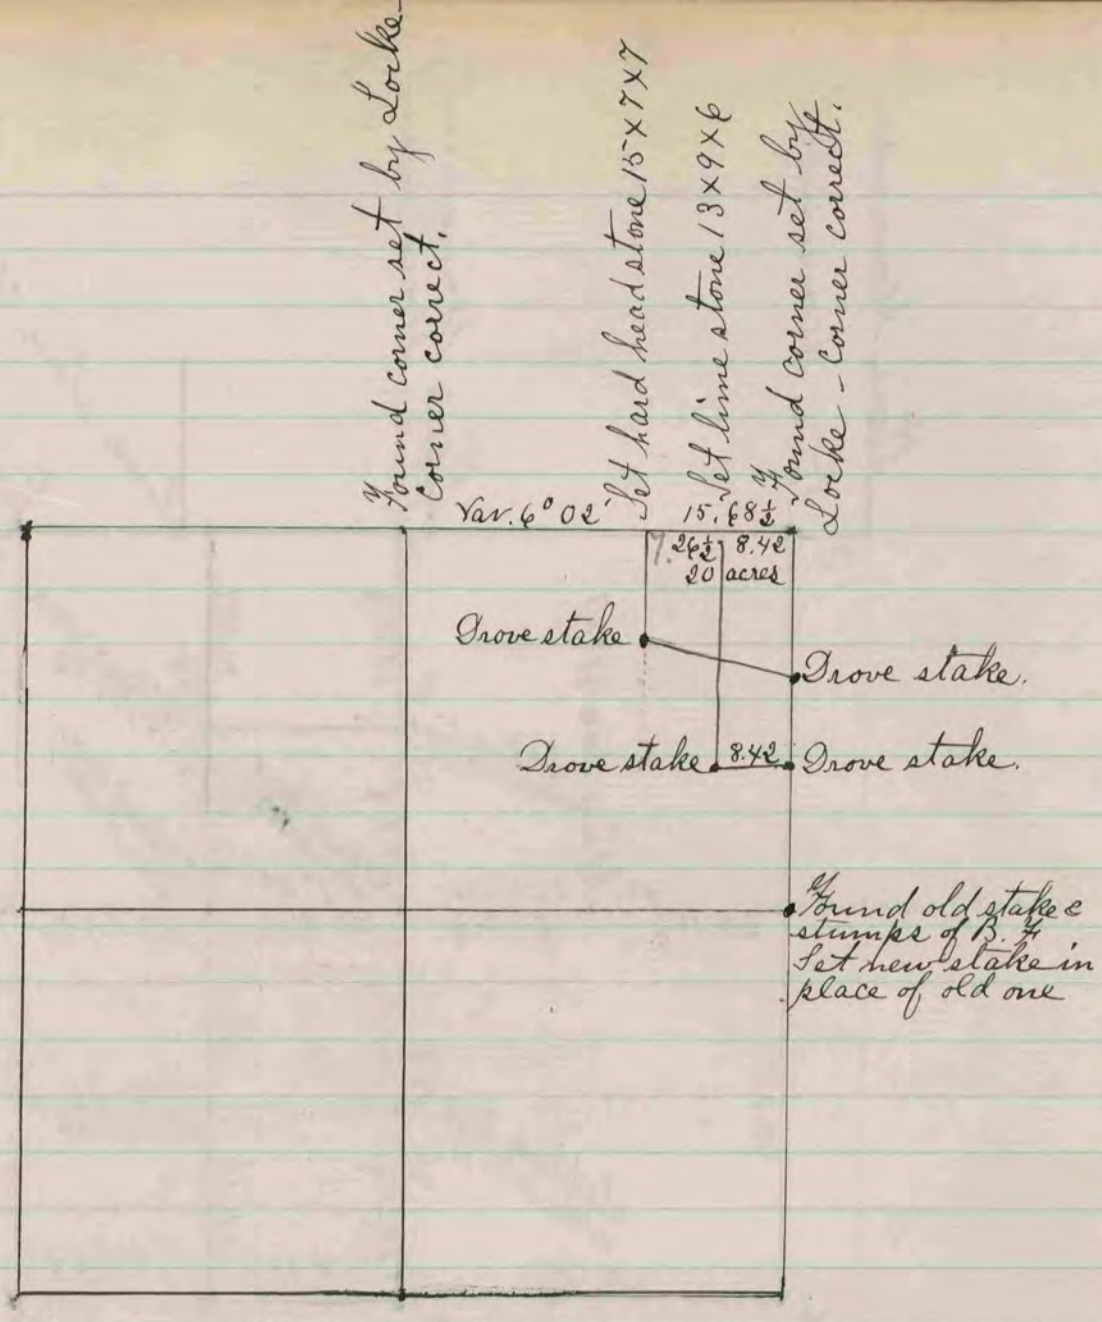 Found corner set by Locke-
Corner correct.
Set hard head stone 15 x 7 x 7
Set lime stone 13 x 9 x 6
Found corner set by
Locke - Corner correct.
Var. 6° 02'
15.68½
7.26½ 8.42
20 acres
Drove stake
Drove stake.
Drove stake 8.42 Drove stake.
Found old stake &
stumps of B. F
Set new stake in
place of old one